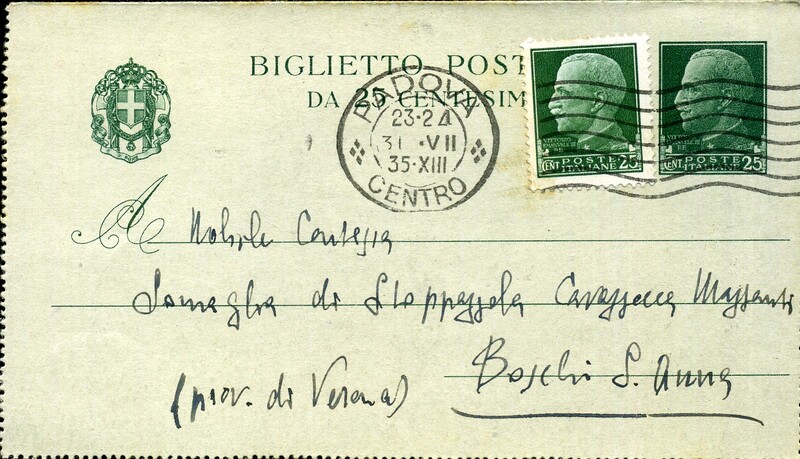 BIGLIETTO POST
DA 25 CENTESIM
PADOVA
23-24
31 ·VII
35·XIII
CENTRO
VITTORIO
EMANUELE III
RE
CENT. POSTE ITALIANE 25
CENT. POSTE ITALIANE 25
A Nobile Contessa
Somaglia di Stoppazzola Mazzanti
Boschi S. Anna
(prov. di Verona)